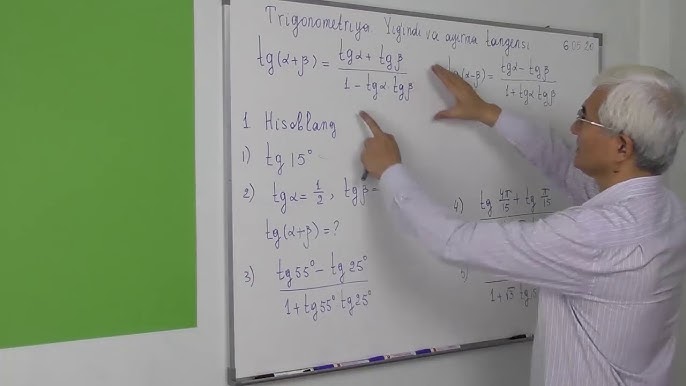 Trigonometriya. Yig'indi va ayirma tangensi 6.05.20
tg(α+β) = (tgα + tgβ) / (1 - tgα · tgβ)
tg(α-β) = (tgα - tgβ) / (1 + tgα tgβ)
1 Hisoblang
1) tg 15°
2) tgα = 1/2, tgβ =
tg(α+β) = ?
3) (tg 55° - tg 25°) / (1 + tg 55° tg 25°)
4) tg 4π/15 + tg π/15